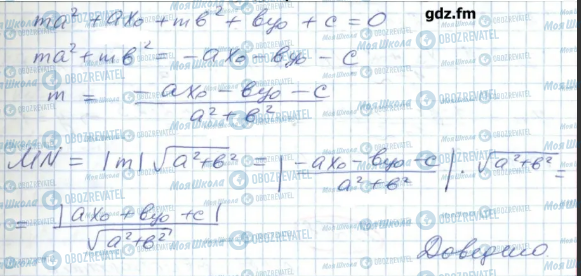 gdz.fm
ma² + ax₀ + mв² + вy₀ + c = 0
ma² + mв² = -ax₀ - вy₀ - c
m = (-ax₀ - вy₀ - c) / (a² + в²)
MN = |m| √(a² + в²) = |(-ax₀ - вy₀ - c) / (a² + в²)| · √(a² + в²) =
= |ax₀ + вy₀ + c| / √(a² + в²)
Доведено